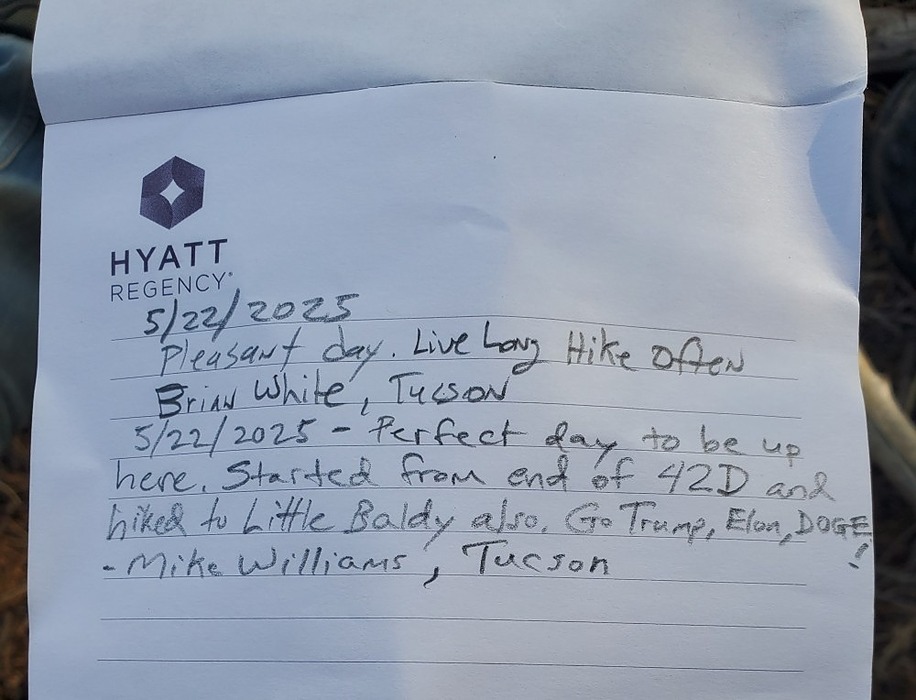 HYATT
REGENCY®
5/22/2025
Pleasant day. Live Long Hike Often
Brian White, Tucson
5/22/2025 - Perfect day to be up
here. Started from end of 42D and
hiked to Little Baldy also. Go Trump, Elon, DOGE!
- Mike Williams, Tucson